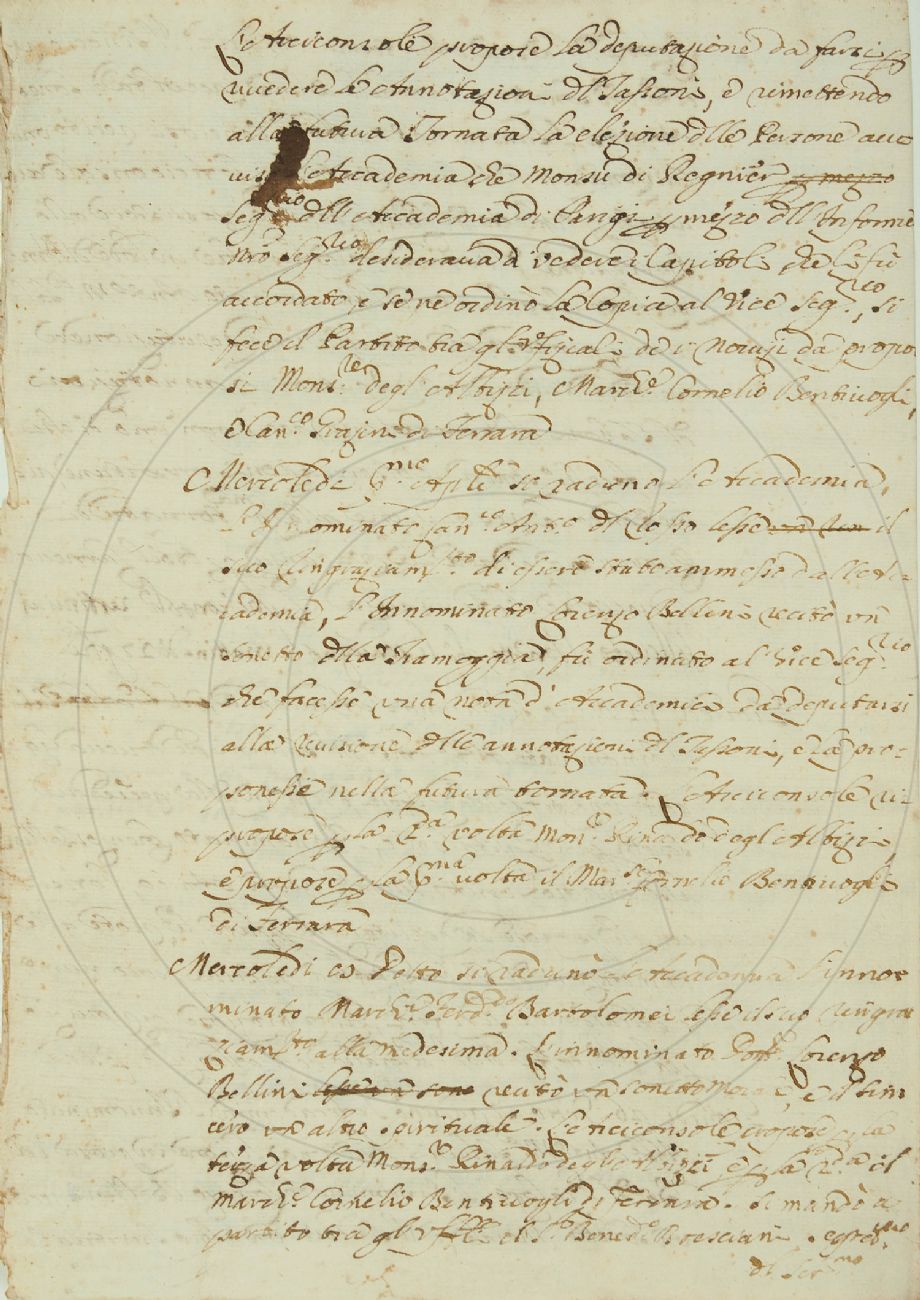 L'Arciconsole propose la deputazione da farsi p
rivedere le Annotazioni dl Tassoni, e rimettendo
alla futura Tornata la elezione dlle Persone avvi
L'Accademia che Monsù di Regnier p mezzo
Segrio dll'Accademia di Parigi p mezzo dll'Inferri
nro Segrio desiderava di vedere i Capitoli, che li fù
accordato, e se ne ordinò la Copia al Vice Segrio, si
fece il Partito tra gl'Vfiziali de i Novizi da propor
si Monsre degl'Albizzi, Marche Cornelio Bentivogli,
e Canco Grazini di Ferrara
Mercoledi pmo Aple si radunò l'Accademia,
L'Innominato Canco Anto dl Rosso lesse un Rin il
suo Ringraziamto di essere stato ammesso dall'Ac-
cademia, L'Innominato Lorenzo Bellini recitò vn
sonetto dlla Tramoggia, fù ordinato al Vice Segrio
che facesse vna nota d'Accademici da deputarsi
alla revisione dlle annotazioni dl Tassoni, e la pro-
ponesse nella futura tornata. L'Arciconsole ri-
propose p la 2a volta Monre Rinaldo degl'Albizi,
e propose p la pma volta il Marse Cornelio Bentivogli
di Ferrara
Mercoledi 03 Detto si radunò l'Accademia l'inno
minato Marche Ferdo Bartolomei lesse il suo ringra
ziamto alla medesima. L'innominato Dotte Lorenzo
Bellini lesse vn sone recitò vn sonetto e d sim
vn altro spirituale. L'Arciconsole propose p la
terza volta Monsre Rinaldo degl'Albizzi e p la 2a il
Marche Cornelio Bentivogli di Ferrara. Si mandò a
partito tra gl'Vffli il Se Benedo Bresciani
dl Sermo